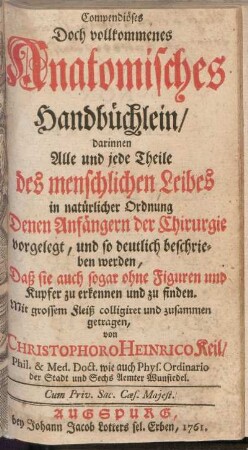 Compendiöses
Doch vollkommenes
Anatomisches
Handbüchlein/
darinnen
Alle und jede Theile
des menschlichen Leibes
in natürlicher Ordnung
Denen Anfängern der Chirurgie
vorgelegt, und so deutlich beschrie-
ben werden,
Daß sie auch sogar ohne Figuren und
Kupfer zu erkennen und zu finden.
Mit grossem Fleiß colligiret und zusammen
getragen,
von
CHRISTOPHORO HEINRICO Keil/
Phil. & Med. Doct. wie auch Phys. Ordinario
der Stadt und Sechs Aemter Wunsidel.
Cum Priv. Sac. Cæs. Majest.
AUGSPURG,
bey Johann Jacob Lotters sel. Erben, 1761.